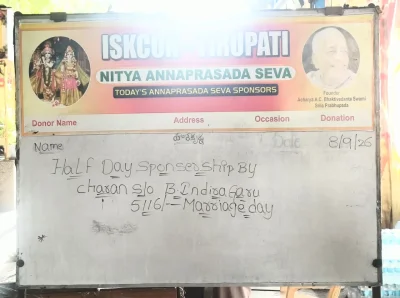 ISKCON TIRUPATI
NITYA ANNAPRASADA SEVA
TODAY'S ANNAPRASADA SEVA SPONSORS
Founder
Acharya A.C. Bhaktivedanta Swami
Srila Prabhupada
Donor Name Address Occasion Donation
Name Date 8/9/25
Half Day Sponsership By
charan S/o B. Indira Garu
5116/- Marriage day